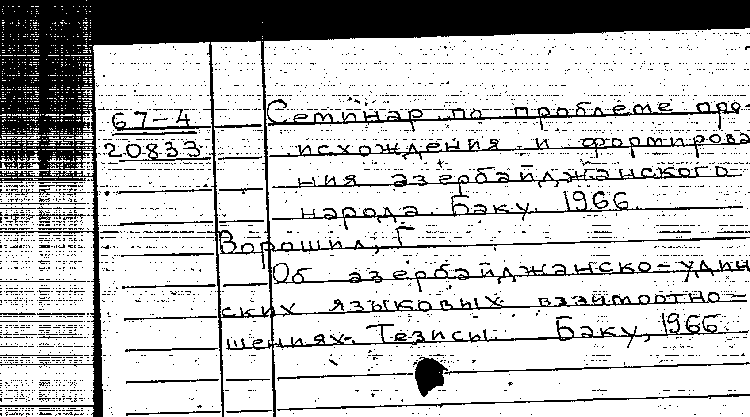 67-4
20833
Семинар по проблеме про-
исхождения и формирова
ния азербайджанского
народа. Баку. 1966.
Ворошил, Г.
Об азербайджанско-удин
ских языковых взаимоотно-
шениях. Тезисы. Баку, 1966.